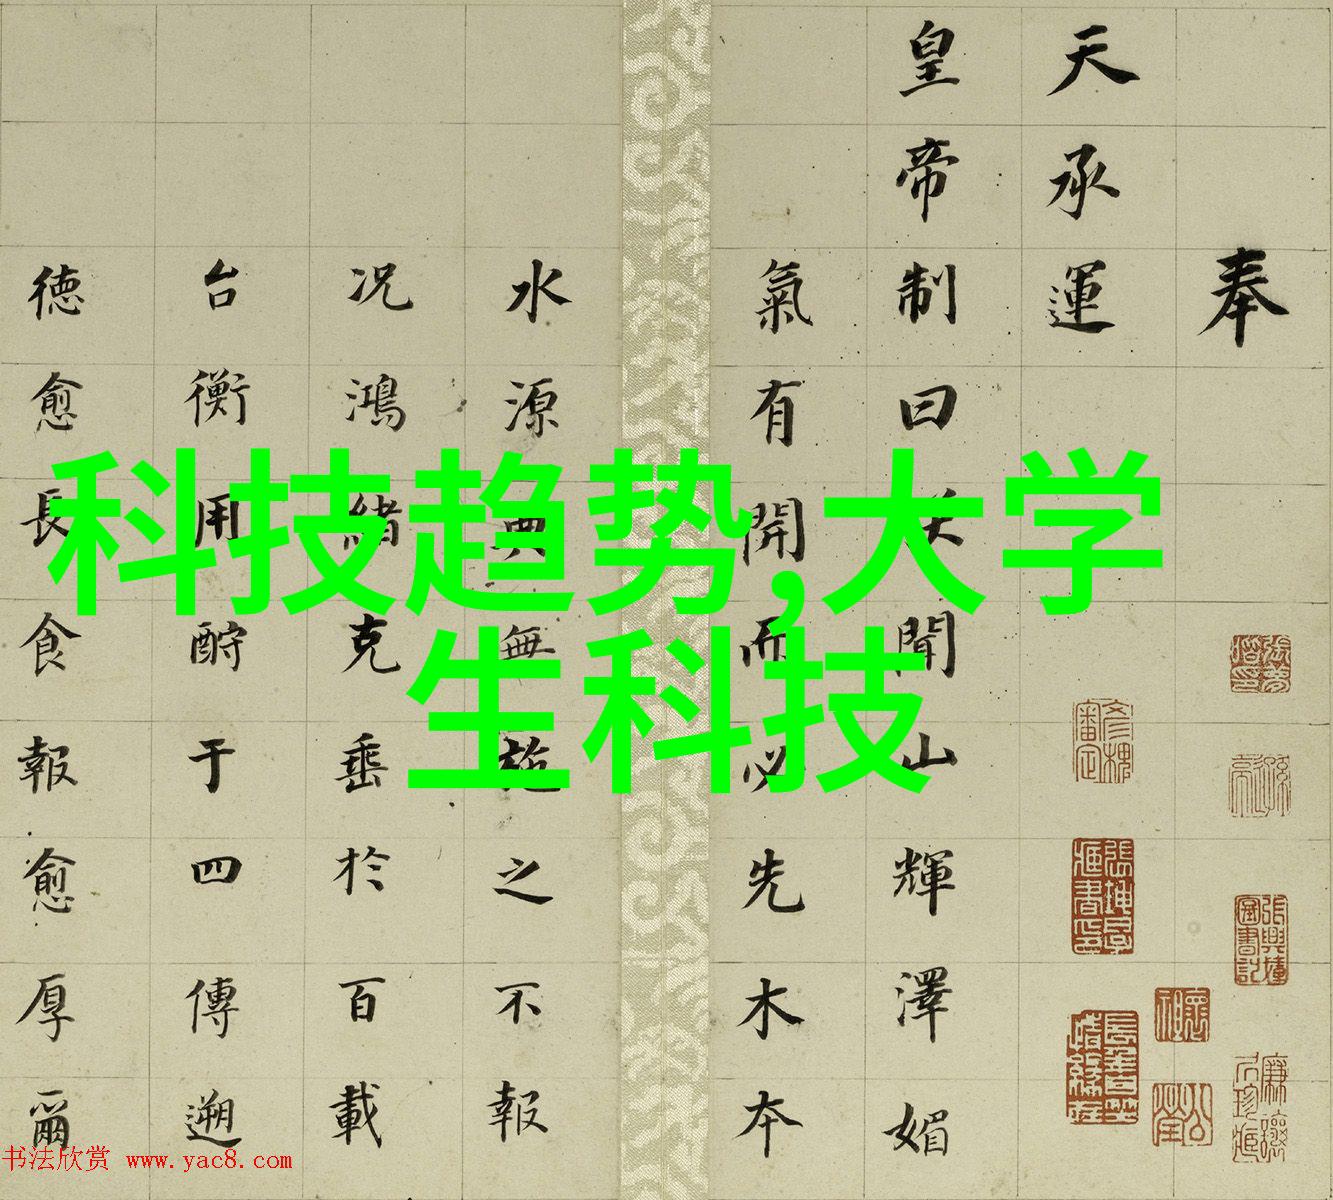 奉
天承運
皇帝制曰朕聞山輝澤媚
氣有開而必先木本
水源典無施之不報
况鴻緒克垂於百載
台衡用酧于四傳遡
德愈長食報愈厚爾
科技趋势,大学
生科技
书法欣赏 www.yac8.com